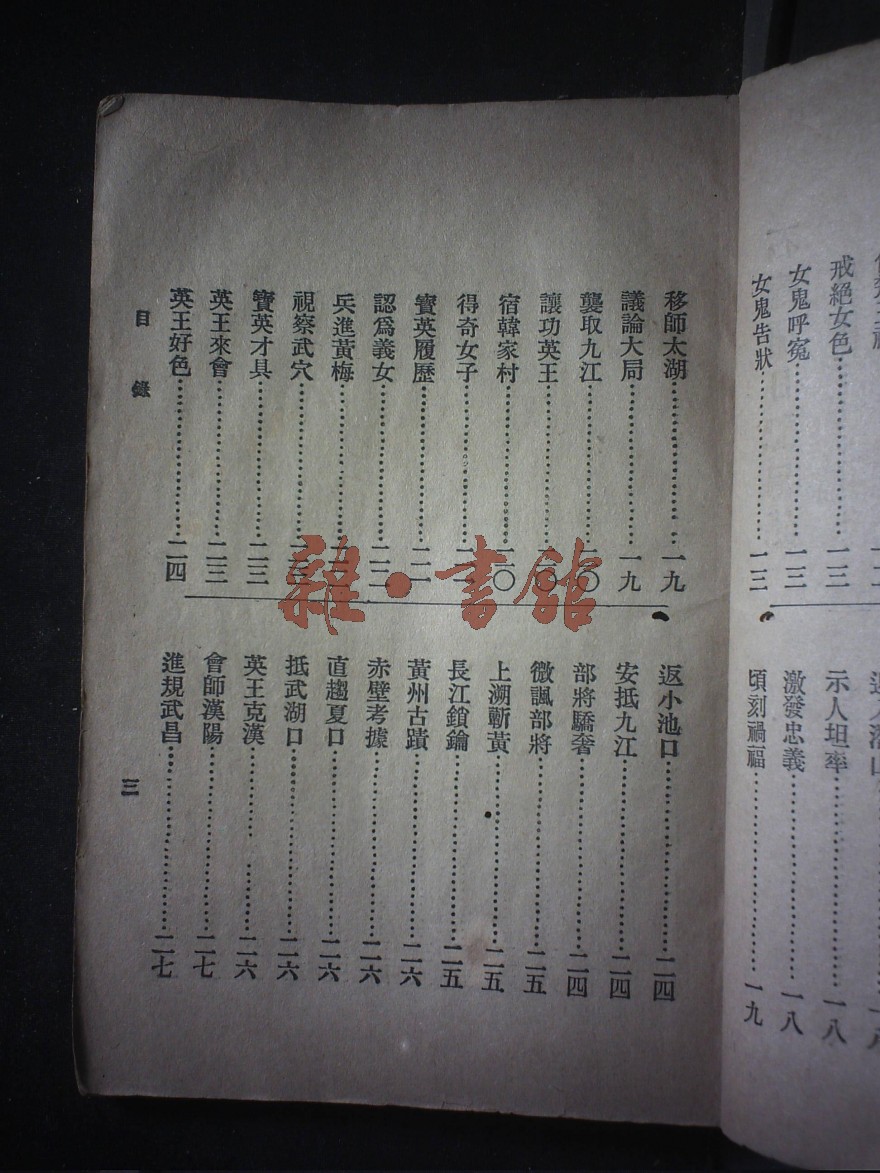 戒絕女色……一三
女鬼呼冤……一三
女鬼告狀……一三
示人坦率……一八
激發忠義……一八
頃刻禍福……一九
移師太湖……一九
議論大局……一九
襲取九江……二〇
讓功英王……二〇
宿韓家村……二〇
得奇女子……二一
寶英履歷……二一
認爲義女……二二
兵進黃梅……二二
視察武穴……二三
寶英才具……二三
英王來會……二三
英王好色……二四
返小池口……二四
安抵九江……二四
部將驕奢……二四
微諷部將……二五
上溯蘄黃……二五
長江鎖鑰……二五
黃州古蹟……二六
赤壁考據……二六
直趨夏口……二六
抵武湖口……二六
英王克漢……二六
會師漢陽……二七
進規武昌……二七
目錄
三
雜·書館